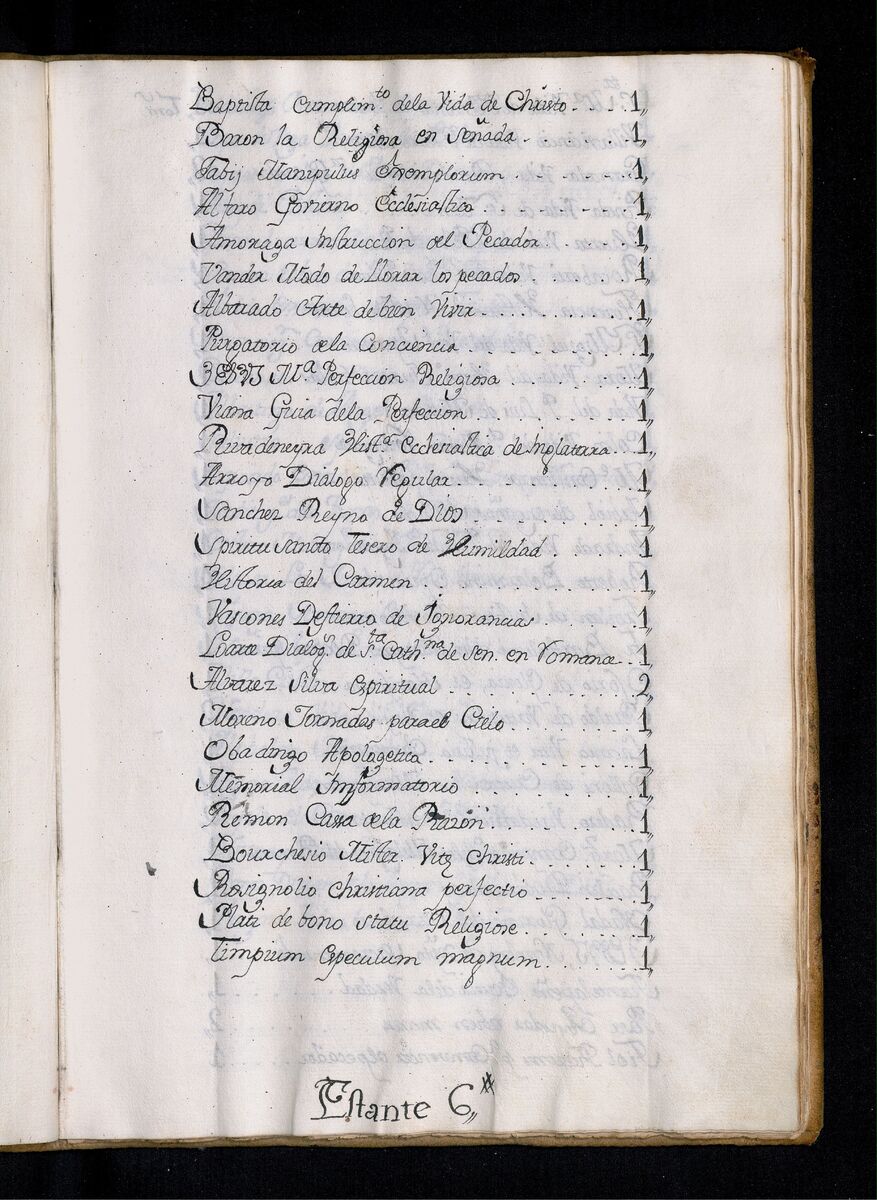 Baptista Cumplim.to dela Vida de Christo 1,,
Baron la Religiosa en señada 1,,
Fabij Manipulus Exemplorum 1,,
Alfaro Govierno Ecclesiastico 1,,
Amoraga Instruccion del Pecador 1,,
Vander Modo de Llorar los pecados 1,,
Albarado Arte de bien Vivir 1,,
Purgatorio dela Conciencia 1,,
M.a Perfeccion Religiosa 1,,
Viana Guia dela Perfeccion 1,,
Rivadeneyra Hist.a Ecclesiastica de Inglaterra 1,,
Arroyo Dialogo Regular 1,,
Sanchez Reyno de Dios 1,,
Spiritu Santo Tesero de Humildad 1
Historia del Carmen 1,,
Vascones Destierro de Ignorancias 1,,
Loarte Dialog.s de s.ta Cath.na de Sen. en Romance 1,,
Alvarez Silva Espiritual 2,,
Moreno Jornadas parael Cielo 1,,
Obadirigo Apologetica 1,,
Memorial Informatorio 1,,
Remon Cassa dela Razon 1,,
Bourchesio Mister. Vitȩ Christi 1,,
Rosignolio christiana perfectio 1,,
Plati de bono statu Religiose 1,,
Timpium Especulum magnum 1,,
Estante 6,,